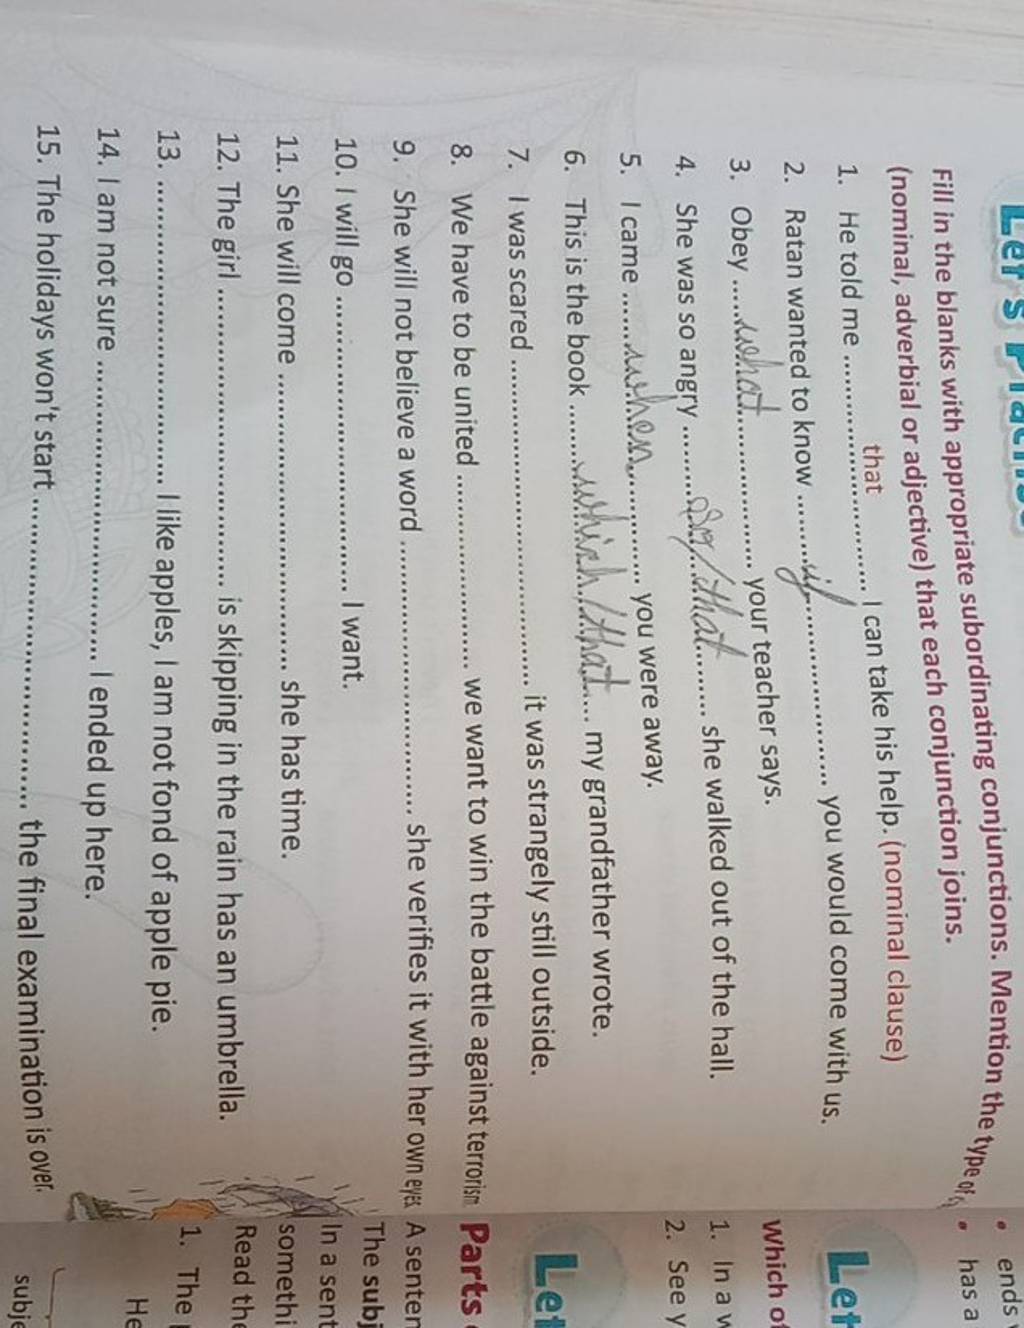 Let's Practise
Fill in the blanks with appropriate subordinating conjunctions. Mention the type of
(nominal, adverbial or adjective) that each conjunction joins.
1. He told me ..........that.......... I can take his help. (nominal clause)
2. Ratan wanted to know ..........if.......... you would come with us.
3. Obey ..........what.......... your teacher says.
4. She was so angry ..........that.......... she walked out of the hall.
5. I came ..........when.......... you were away.
6. This is the book ..........which/that.......... my grandfather wrote.
7. I was scared .......... it was strangely still outside.
8. We have to be united .......... we want to win the battle against terrorism.
9. She will not believe a word .......... she verifies it with her own eyes.
10. I will go .......... I want.
11. She will come .......... she has time.
12. The girl .......... is skipping in the rain has an umbrella.
13. .......... I like apples, I am not fond of apple pie.
14. I am not sure .......... I ended up here.
15. The holidays won't start .......... the final examination is over.
ends
has a
Let
Which of
1. In a w
2. See y
Let
Parts
A senten
The subj
In a sent
somethi
Read the
1. The
He
subje